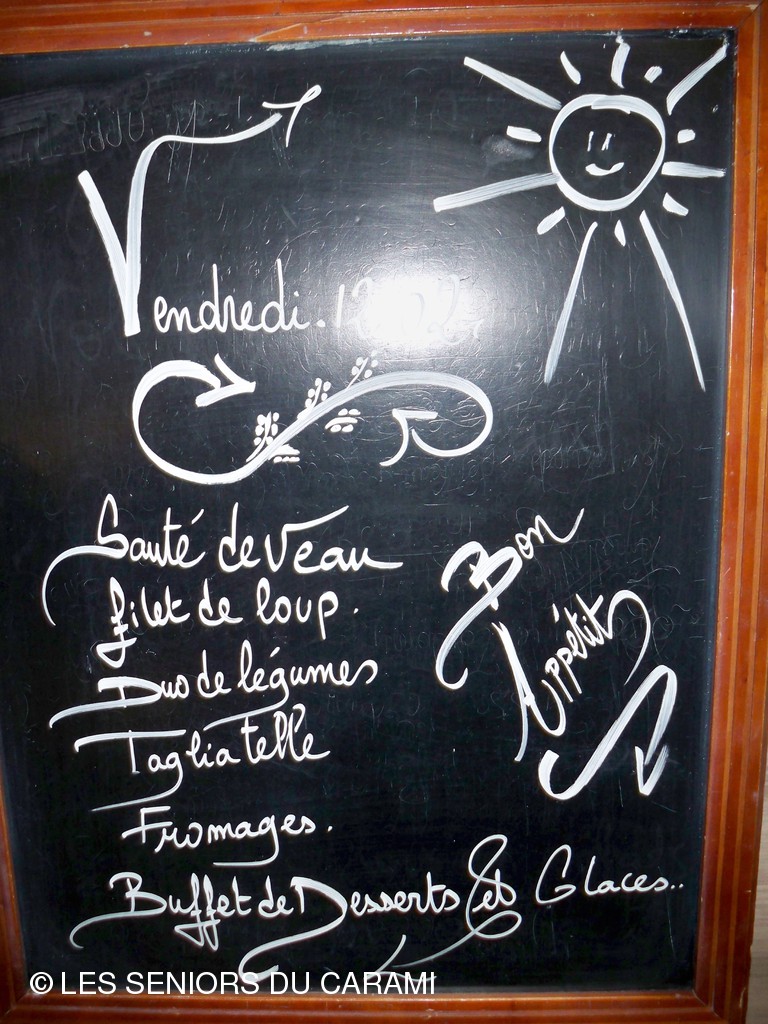 Vendredi.
Sauté de veau
filet de loup.
Duo de légumes
Tagliatelle
Fromages.
Buffet de Desserts et Glaces..
Bon
Appétit
© LES SENIORS DU CARAMI